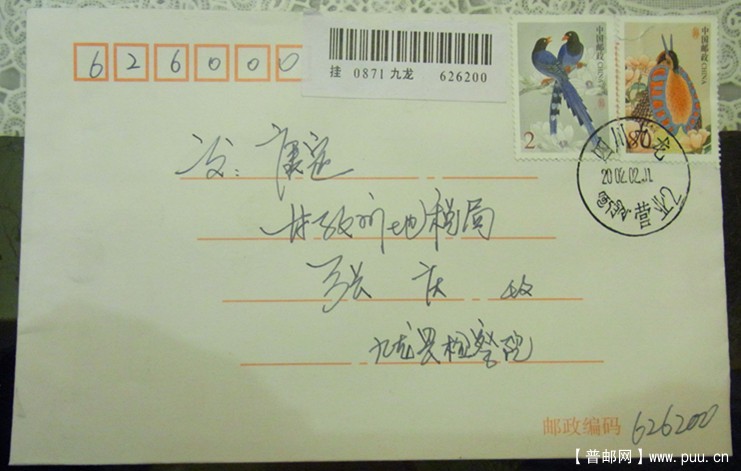 626000
挂 0871 九龙 626200
中国邮政 CHINA
2
中国邮政 CHINA
80
四川九龙
2002.02.11
营
交：康定
甘孜州地税局
张庆 收
九龙县检察院
邮政编码 626200
【普邮网】www.puu.cn